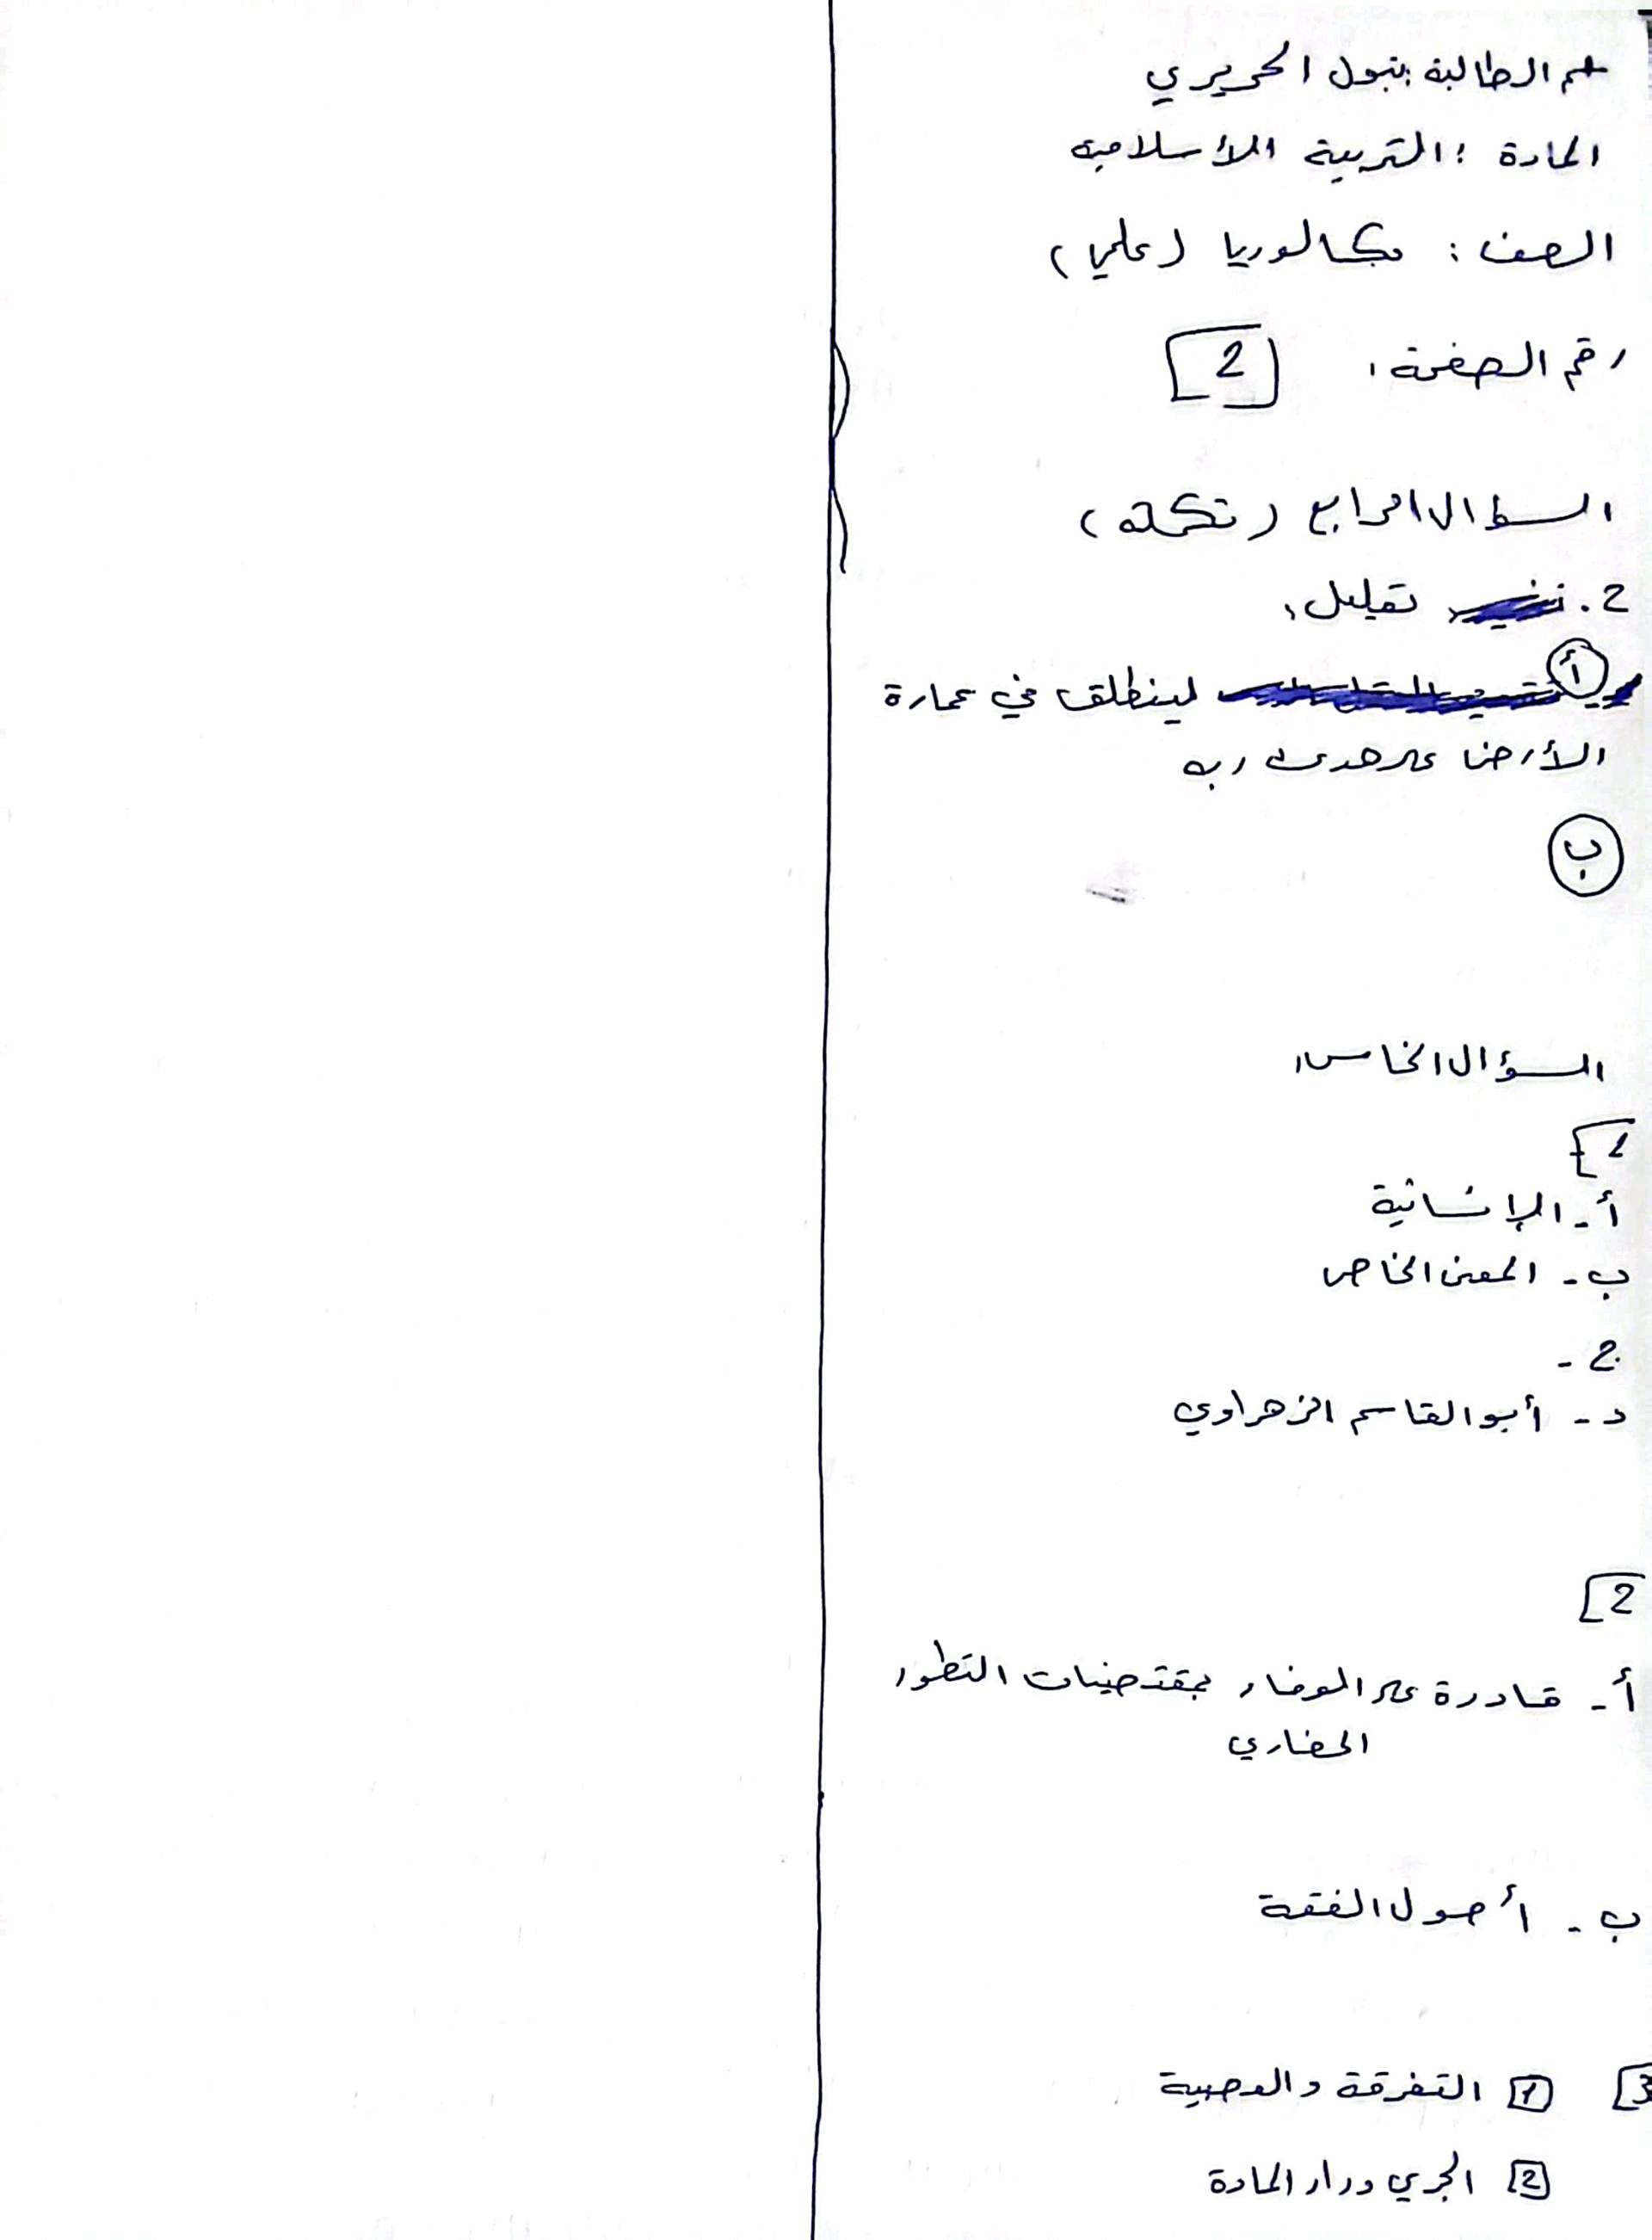 اسم الطالبة: بتول الحريري
المادة: التربية الأسلامية
الصف: بكالوريا (علمي)
رقم الصفحة: 2
السؤال الرابع (تكملة)
2. تعليل:
أ لينطلق في عمارة
الأرض على هدى ربه
ب
السؤال الخامس:
1
أ- الإنسانية
ب- المعنى الخاص
ج-
د- أبو القاسم الزهراوي
2
أ- قادرة على الوفاء بمقتضيات التطور
الحضاري
ب- أصول الفقة
3 1 التفرقة والعصبية
2 الجري وراء المادة